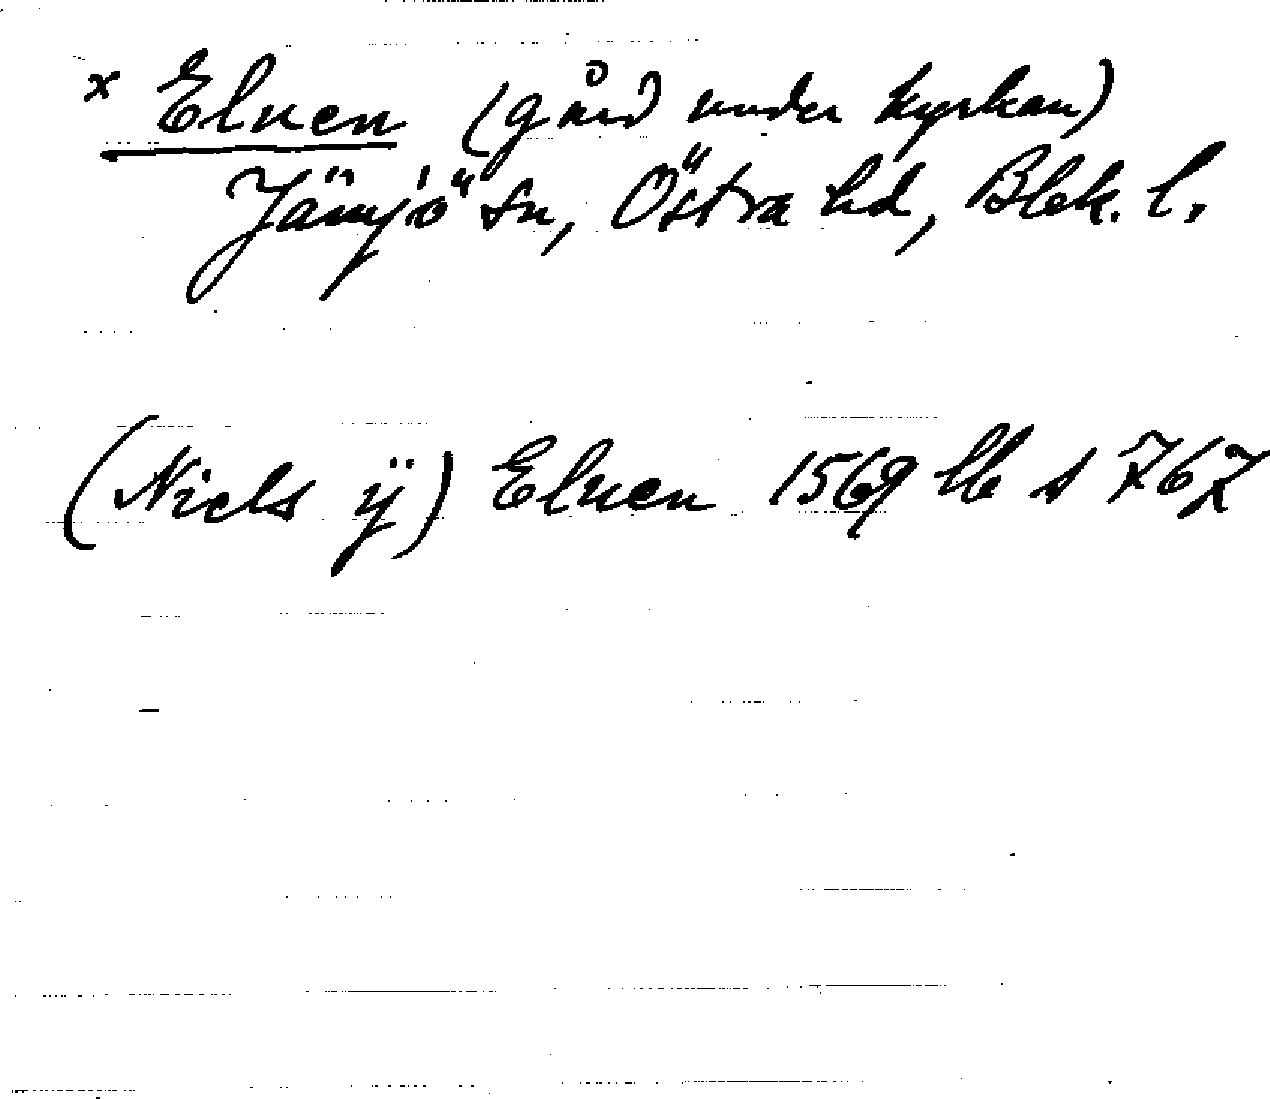 x Elnen (gård under kyrkan)
Jämjö sn, Östra hd, Blek. l.
(Niels ÿ) Elnen 1569 lb s 767